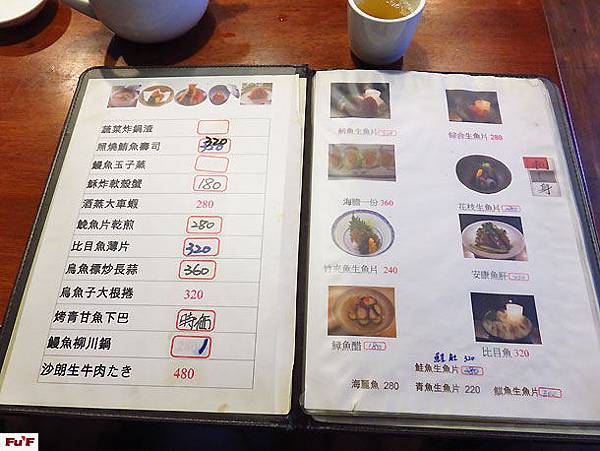 蔬菜炸鍋渣
照燒鯖魚壽司 320
鰻魚玉子蒸
酥炸軟殼蟹 180
酒蒸大車蝦 280
鮸魚片乾煎 280
比目魚薄片 320
烏魚鰾炒長蒜 360
烏魚子大根捲 320
烤青甘魚下巴 時価
鰻魚柳川鍋
沙朗生牛肉たき 480
鮪魚生魚片
綜合生魚片 280
刺身
海膽一份 360
花枝生魚片
竹夾魚生魚片 240
安康魚肝
鱆魚醋 180
比目魚 320
鮭肚 320
鮭魚生魚片 280
海鱺魚 280 青魚生魚片 220 魽魚生魚片
Fu'F